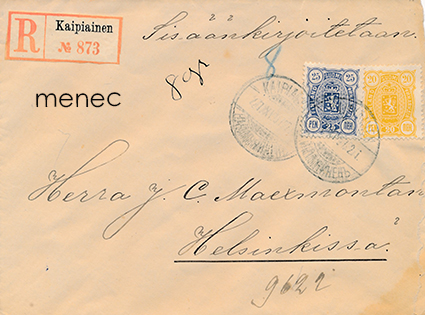 R Kaipiainen
№ 873
Sisäänkirjoitetaan.
8 gr
menec
25 25
PEN PEN
20 20
Herra J. C. Maexmontan
Helsinkissä
9622